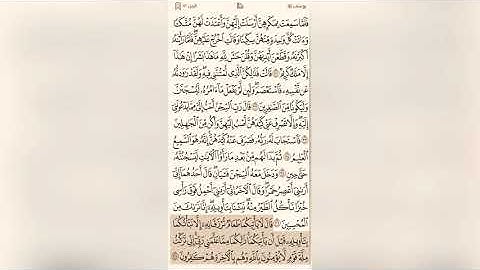 يوسف الجزء ١٢
فَلَمَّا سَمِعَتْ بِمَكْرِهِنَّ أَرْسَلَتْ إِلَيْهِنَّ وَأَعْتَدَتْ لَهُنَّ مُتَّكَـًٔا
وَءَاتَتْ كُلَّ وَٰحِدَةٍ مِّنْهُنَّ سِكِّينًا وَقَالَتِ ٱخْرُجْ عَلَيْهِنَّ فَلَمَّا رَأَيْنَهُۥٓ
أَكْبَرْنَهُۥ وَقَطَّعْنَ أَيْدِيَهُنَّ وَقُلْنَ حَٰشَ لِلَّهِ مَا هَٰذَا بَشَرًا إِنْ هَٰذَآ
إِلَّا مَلَكٌ كَرِيمٌ ٣١ قَالَتْ فَذَٰلِكُنَّ ٱلَّذِى لُمْتُنَّنِى فِيهِ وَلَقَدْ رَٰوَدتُّهُۥ
عَن نَّفْسِهِۦ فَٱسْتَعْصَمَ وَلَئِن لَّمْ يَفْعَلْ مَآ ءَامُرُهُۥ لَيُسْجَنَنَّ
وَلَيَكُونًا مِّنَ ٱلصَّٰغِرِينَ ٣٢ قَالَ رَبِّ ٱلسِّجْنُ أَحَبُّ إِلَىَّ مِمَّا يَدْعُونَنِىٓ
إِلَيْهِ وَإِلَّا تَصْرِفْ عَنِّى كَيْدَهُنَّ أَصْبُ إِلَيْهِنَّ وَأَكُن مِّنَ ٱلْجَٰهِلِينَ
٣٣ فَٱسْتَجَابَ لَهُۥ رَبُّهُۥ فَصَرَفَ عَنْهُ كَيْدَهُنَّ إِنَّهُۥ هُوَ ٱلسَّمِيعُ
ٱلْعَلِيمُ ٣٤ ثُمَّ بَدَا لَهُم مِّنۢ بَعْدِ مَا رَأَوُا۟ ٱلْءَايَٰتِ لَيَسْجُنُنَّهُۥ
حَتَّىٰ حِينٍ ٣٥ وَدَخَلَ مَعَهُ ٱلسِّجْنَ فَتَيَانِ قَالَ أَحَدُهُمَآ إِنِّىٓ
أَرَىٰنِىٓ أَعْصِرُ خَمْرًا وَقَالَ ٱلْءَاخَرُ إِنِّىٓ أَرَىٰنِىٓ أَحْمِلُ فَوْقَ رَأْسِى
خُبْزًا تَأْكُلُ ٱلطَّيْرُ مِنْهُ نَبِّئْنَا بِتَأْوِيلِهِۦٓ إِنَّا نَرَىٰكَ مِنَ
ٱلْمُحْسِنِينَ ٣٦ قَالَ لَا يَأْتِيكُمَا طَعَامٌ تُرْزَقَانِهِۦٓ إِلَّا نَبَّأْتُكُمَا
بِتَأْوِيلِهِۦ قَبْلَ أَن يَأْتِيَكُمَا ذَٰلِكُمَا مِمَّا عَلَّمَنِى رَبِّىٓ إِنِّى تَرَكْتُ
مِلَّةَ قَوْمٍ لَّا يُؤْمِنُونَ بِٱللَّهِ وَهُم بِٱلْءَاخِرَةِ هُمْ كَٰفِرُونَ ٣٧